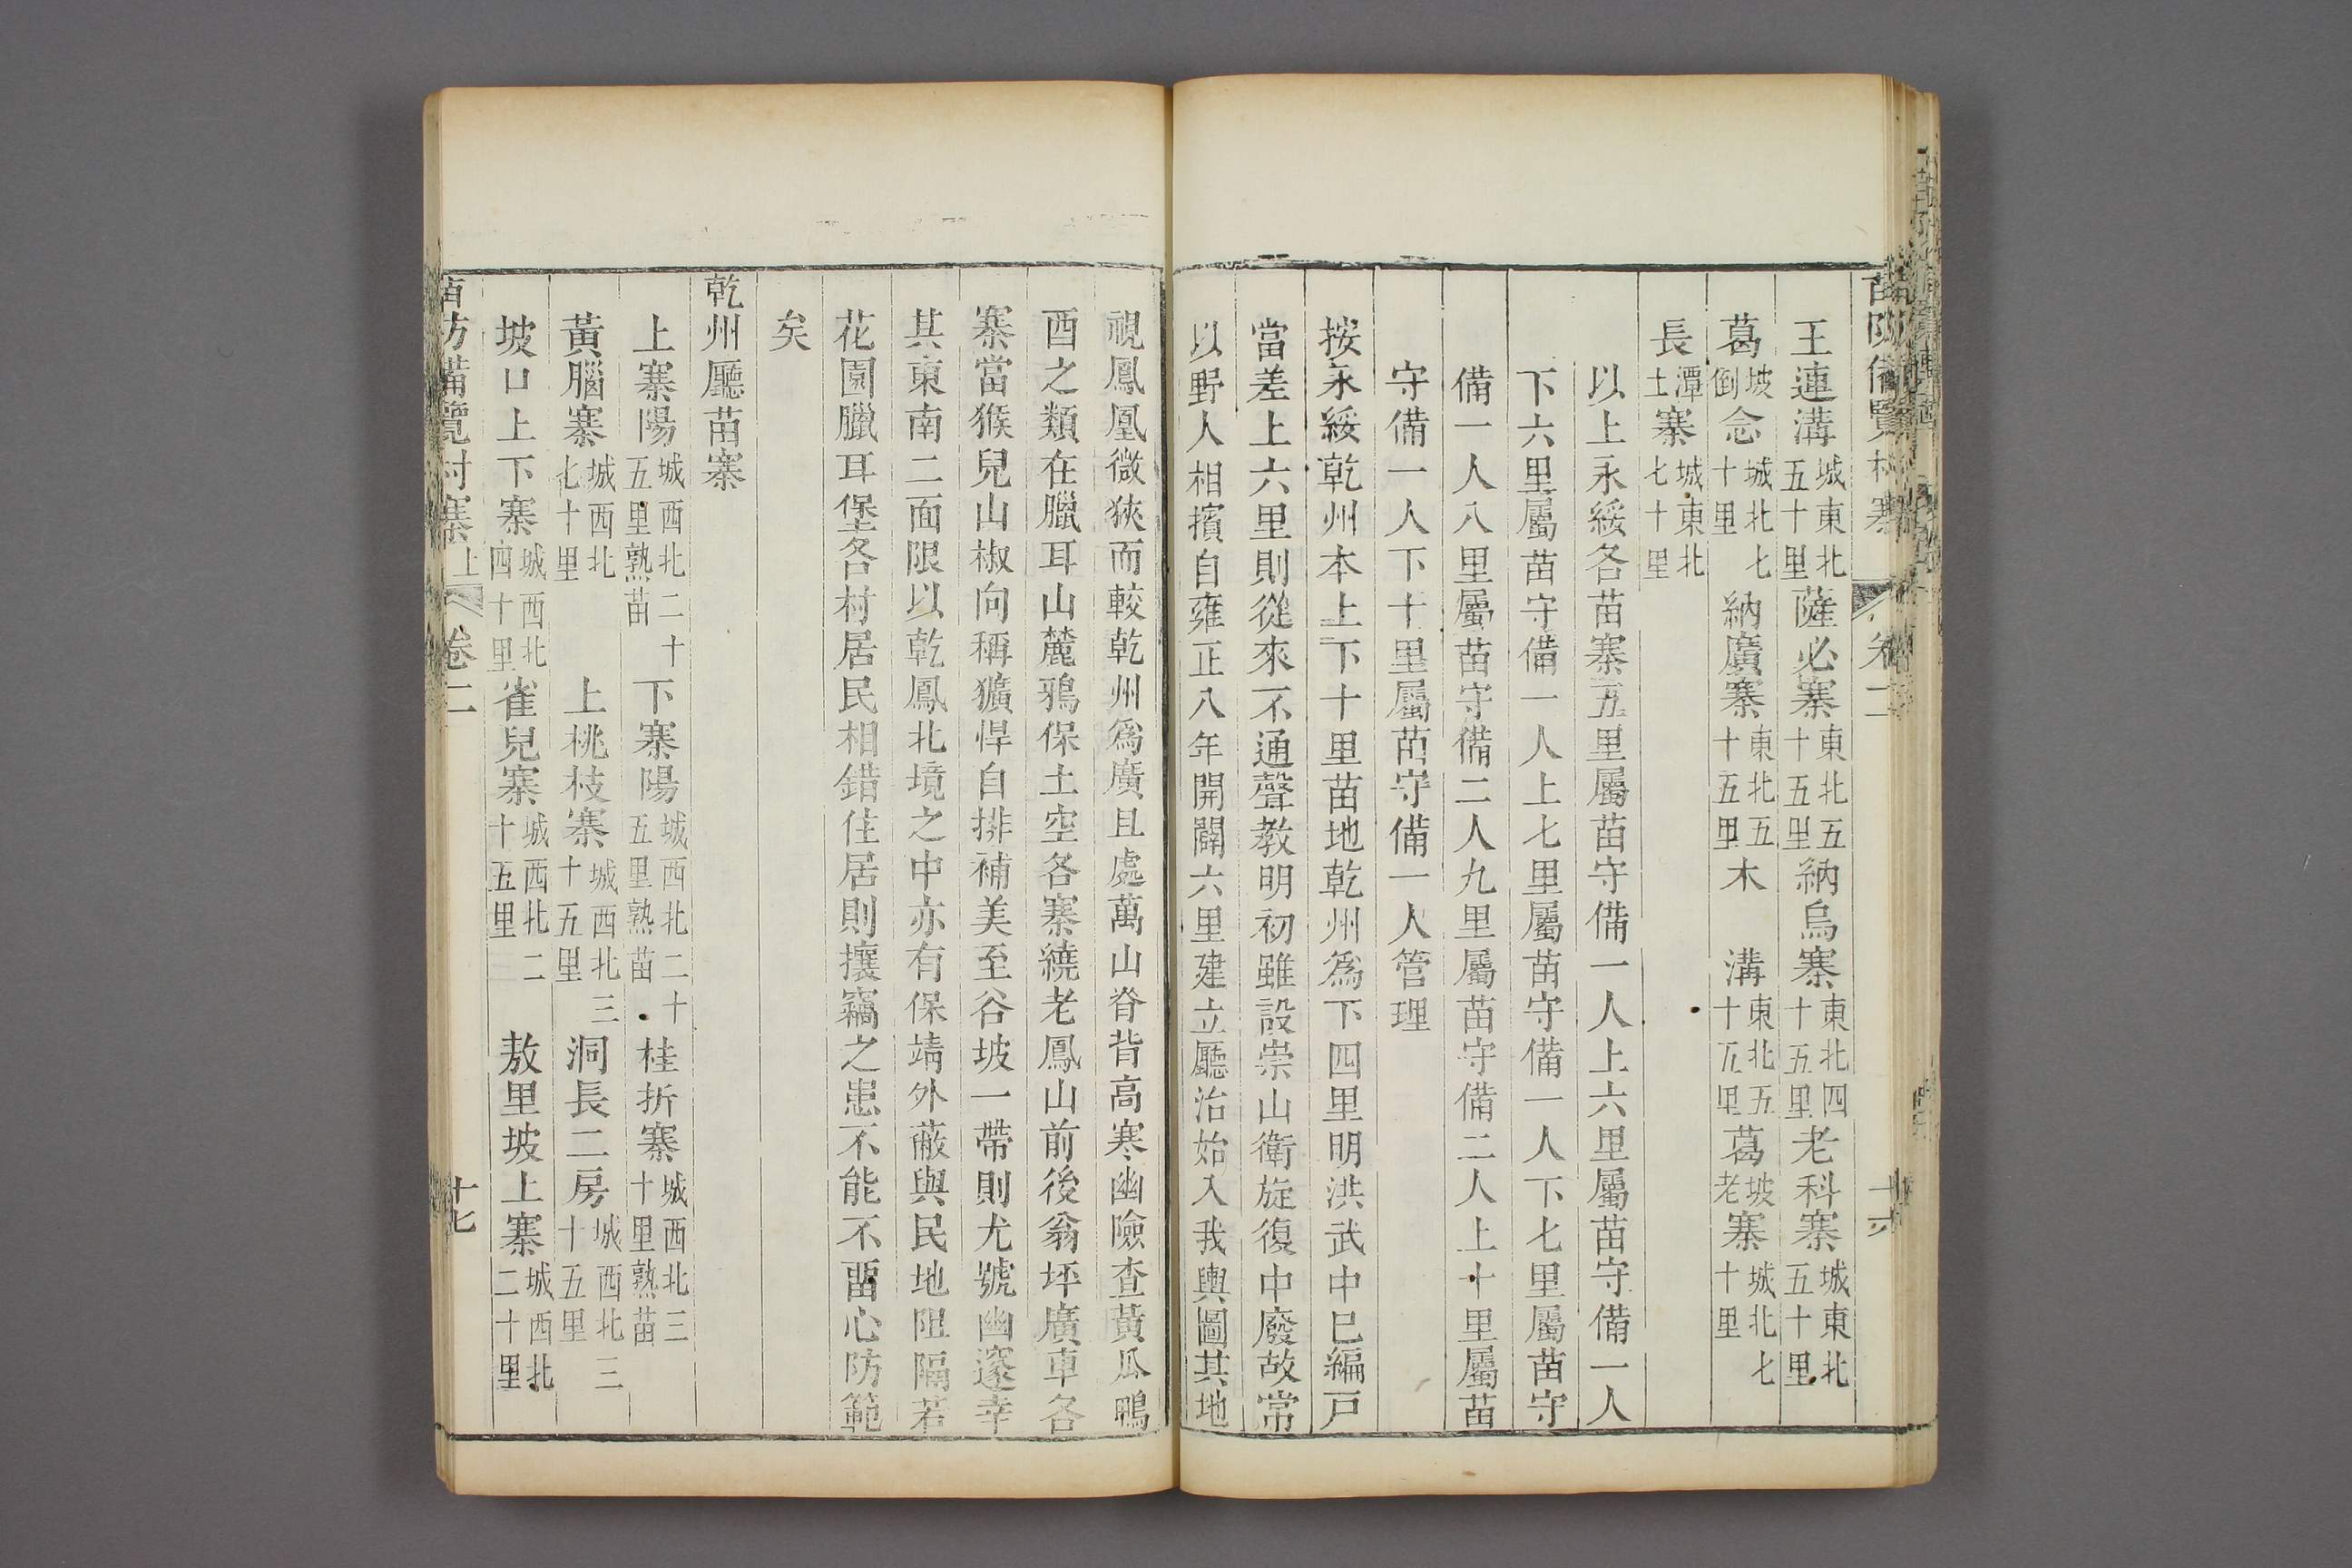 苗防備覽 村寨 卷二 十六
王連溝城東北五十里薩必寨東北五十五里納烏寨東北四十五里老科寨城東北五十里
葛坡倒念城北七十里納廣寨東北五十五里木　溝東北五十五里葛坡老寨城北七十里
長潭土寨城東北七十里
以上永綏各苗寨五里屬苗守備一人上六里屬苗守備一人
下六里屬苗守備一人上七里屬苗守備一人下七里屬苗守
備一人八里屬苗守備二人九里屬苗守備二人上十里屬苗
守備一人下十里屬苗守備一人管理
按永綏乾州本上下十里苗地乾州爲下四里明洪武中已編戸
當差上六里則從來不通聲教明初雖設崇山衛旋復中廢故常
以野人相擯自雍正八年開闢六里建立廳治始入我輿圖其地
視鳳凰微狹而較乾州爲廣且處萬山脊背高寒幽險查黃瓜鴨
酉之類在臘耳山麓鴉保土空各寨繞老鳳山前後翁坪廣車各
寨當猴兒山椒向稱獷悍自排補美至谷坡一帶則尤號幽邃幸
其東南二面限以乾鳳北境之中亦有保靖外蔽與民地阻隔若
花園臘耳堡各村居民相錯住居則攘竊之患不能不畱心防範
矣
乾州廳苗寨
上寨陽城西北二十五里熟苗下寨陽城西北二十五里熟苗桂折寨城西北三十里熟苗
黃腦寨城西北七十里上桃枝寨城西北三十五里洞長二房城西北三十五里
坡口上下寨城西北四十里雀兒寨城西北二十五里敖里坡上寨城西北二十里
苗防備覽 村寨上 卷二 十七